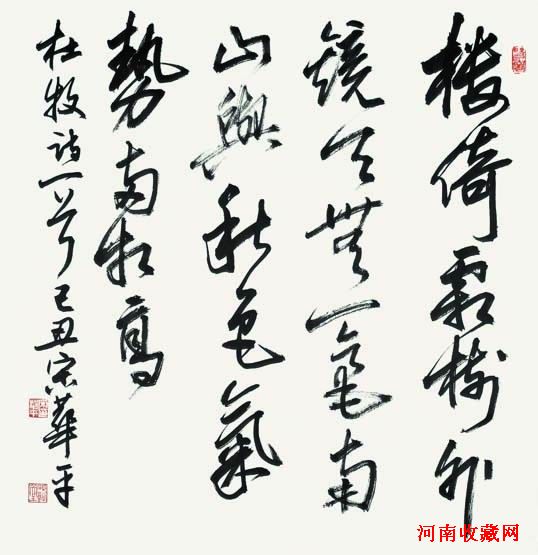 樓倚霜樹外
鏡天無一毫南
山與秋色氣
勢兩相高
杜牧詩一首己丑宋華平
河南收藏网